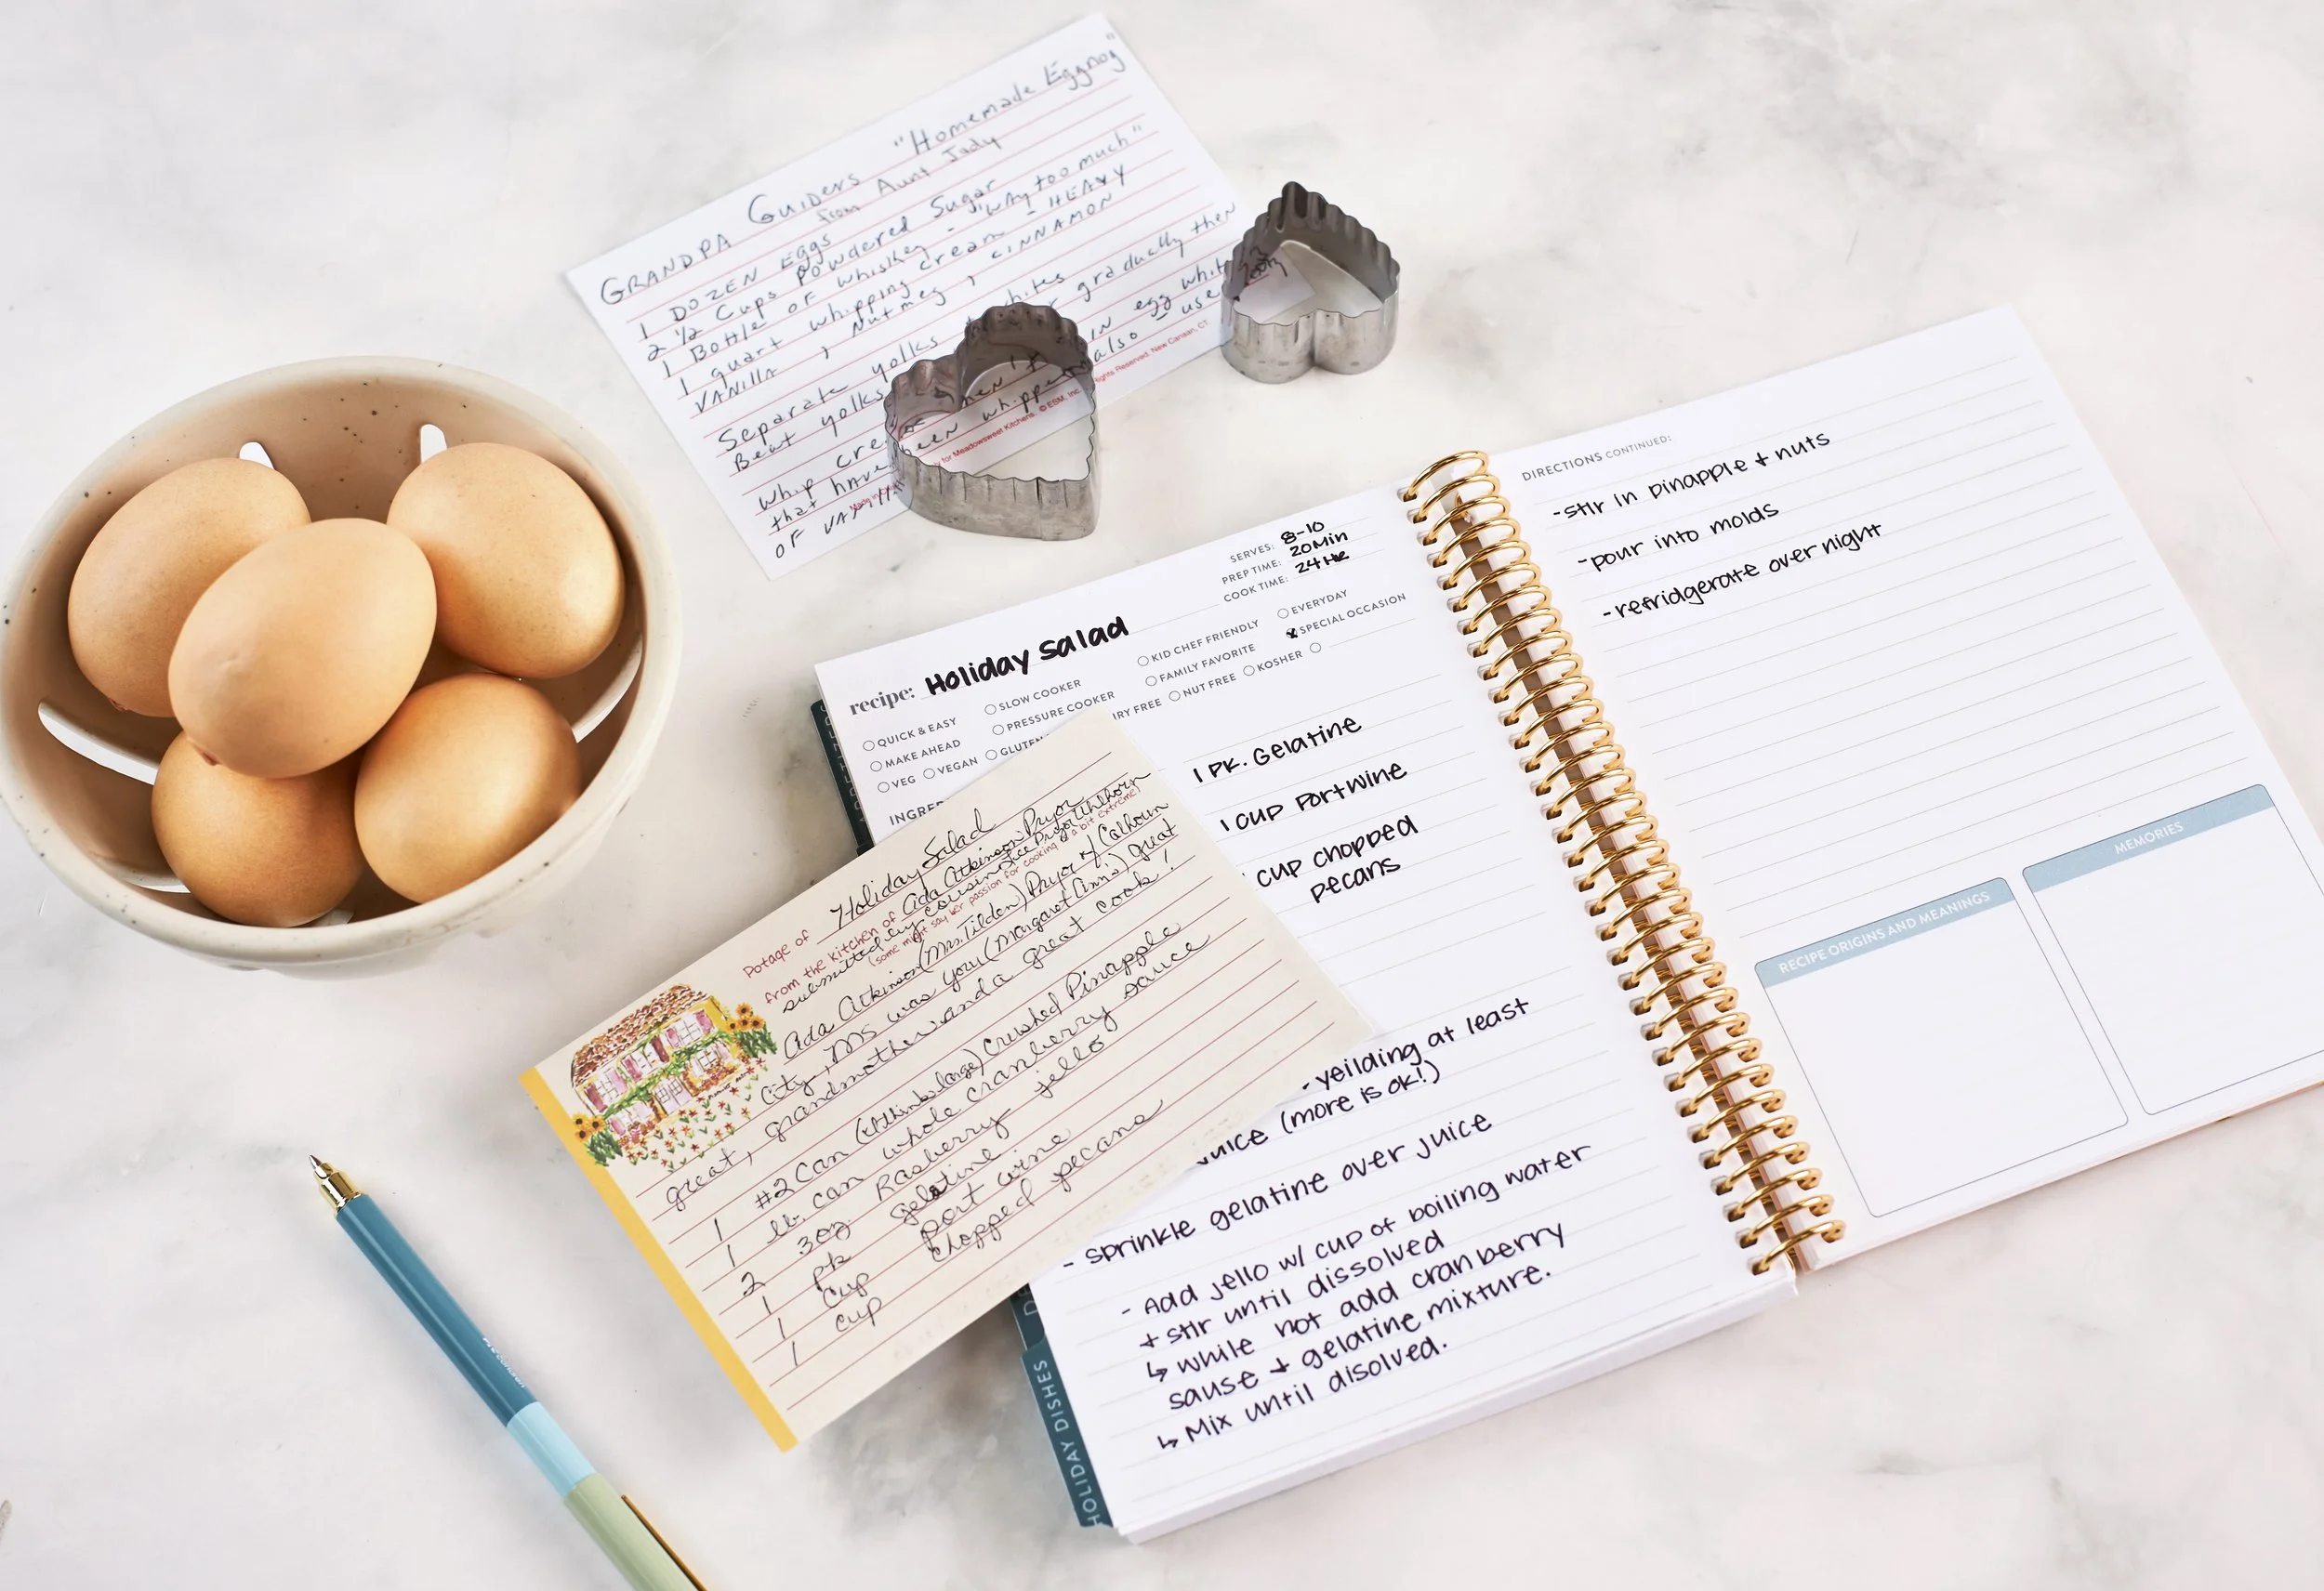 GRANDPA Guiders "Homemade Eggnog"
from Aunt Judy
1 DOZEN Eggs
2 1/2 Cups Powdered Sugar
1 Bottle OF whiskey - "WAy too much"
1 quart whipping cream - HEAVY
VANilla, Nutmeg, CINNAMON
Separate yolks whites
Beat yolks gradually then
whip cre when IN egg whites
that have been whipped also - use
OF VANilla
for Meadowsweet Kitchens. © ESM, Inc. Rights Reserved. New Canaan, CT.
SERVES: 8-10
PREP TIME: 20Min
COOK TIME: 24 Hr
recipe: Holiday Salad
QUICK & EASY
SLOW COOKER
KID CHEF FRIENDLY
EVERYDAY
MAKE AHEAD
PRESSURE COOKER
FAMILY FAVORITE
SPECIAL OCCASION
VEG VEGAN GLUTEN IRY FREE NUT FREE KOSHER
INGRE
1 PK. Gelatine
1 cup Portwine
cup chopped
pecans
yeilding at least
juice (more is ok!)
- sprinkle gelatine over juice
- Add jello w/ cup of boiling water
+ stir until dissolved
↳ while hot add cranberry
sause + gelatine mixture.
↳ Mix until disolved.
HOLIDAY DISHES
Potage of Holiday Salad
from the kitchen of Ada Atkinson Pryor
submitted by cousin Alice Pryor Uhlhorn
(some might say her passion for cooking is a bit extreme)
Ada Atkinson (Mrs. Tilden) Pryor of Calhoun
City, MS was your (Margaret Ann's) great
great, grandmother and a great cook!
1 #2 Can (I think large) crushed Pinapple
1 lb. can whole cranberry sauce
2 3oz. Rasberry jello
1 pk gelatine
1 cup port wine
1 cup chopped pecans
DIRECTIONS CONTINUED:
-stir in pinapple + nuts
-pour into molds
-refridgerate overnight
RECIPE ORIGINS AND MEANINGS
MEMORIES